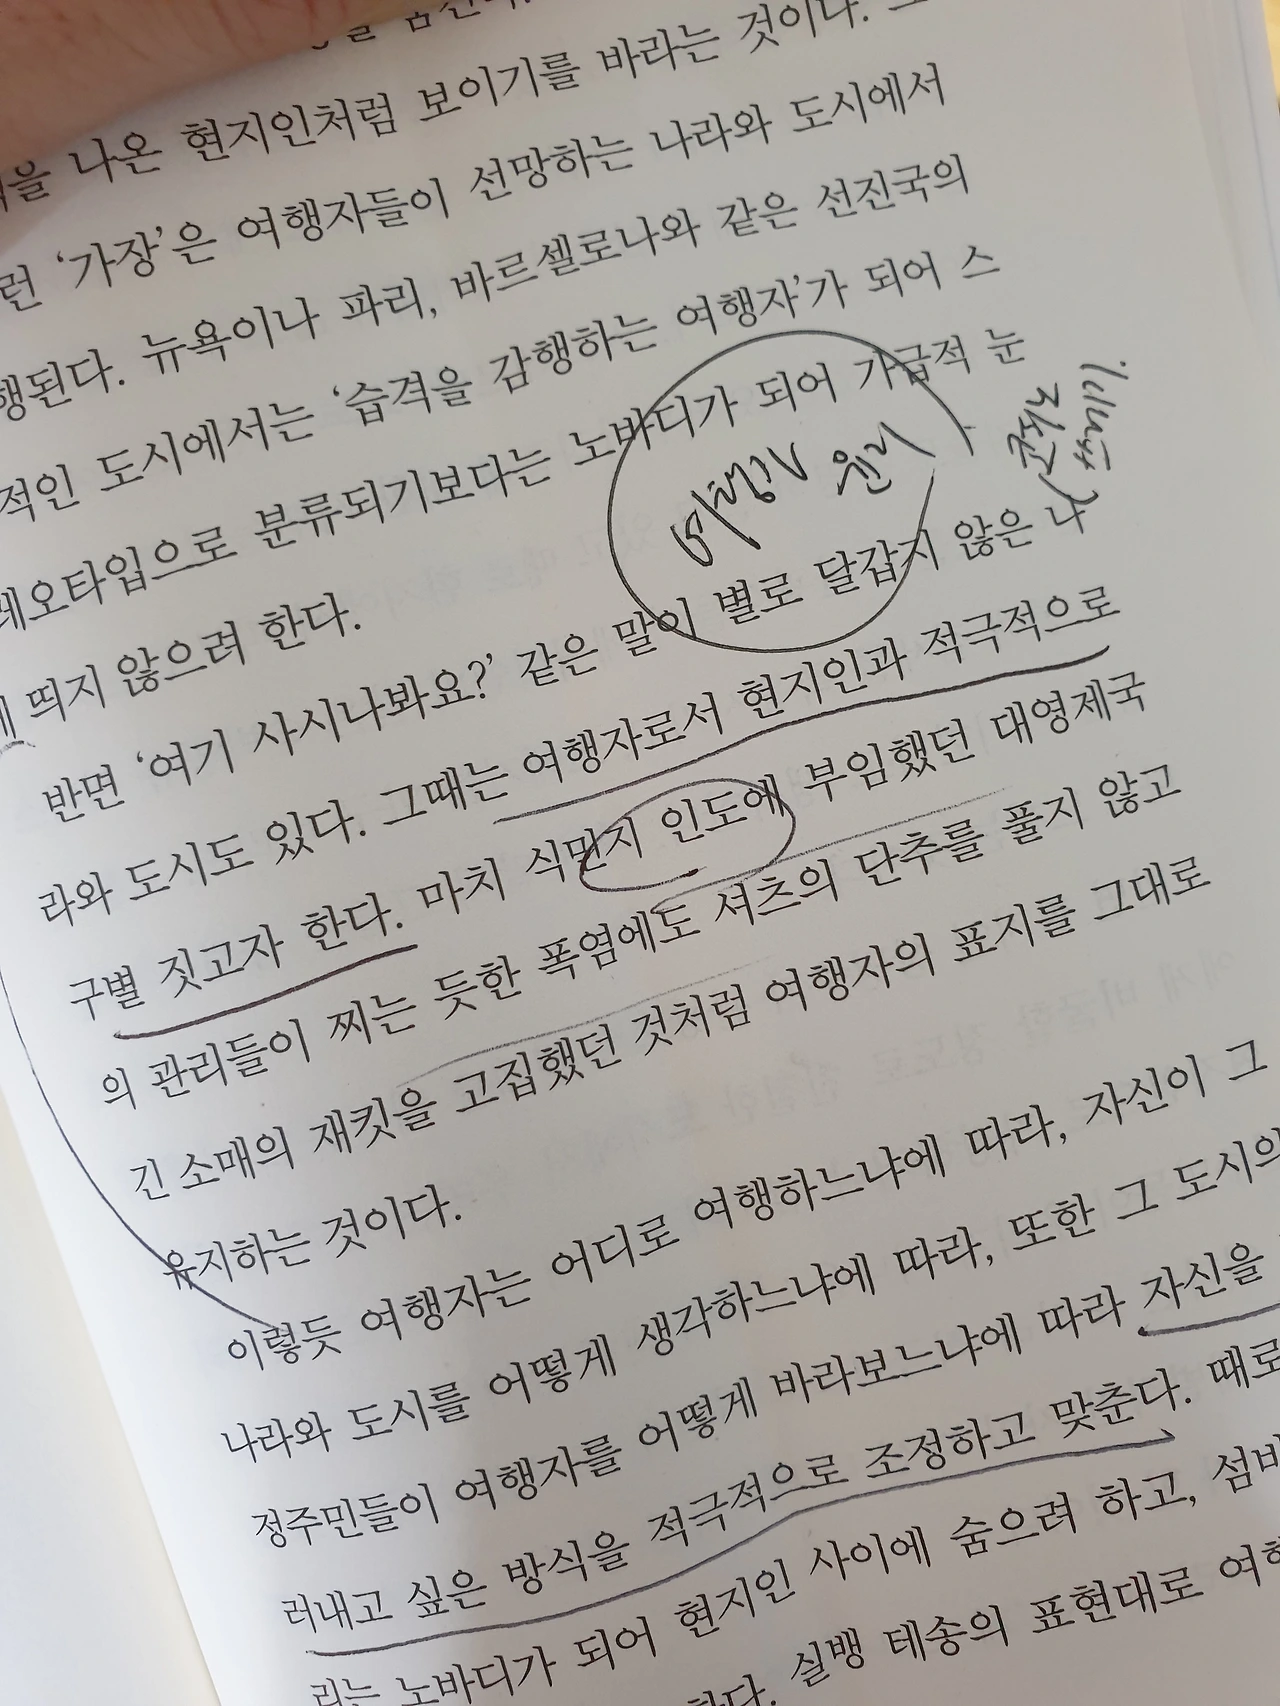 나온 현지인처럼 보이기를 바라는 것이다.
런 ‘가장’은 여행자들이 선망하는 나라와 도시에서
행된다. 뉴욕이나 파리, 바르셀로나와 같은 선진국의
적인 도시에서는 ‘습격을 감행하는 여행자’가 되어 스
레오타입으로 분류되기보다는 노바디가 되어 가급적 눈
에 띄지 않으려 한다.
반면 ‘여기 사시나봐요?’ 같은 말이 별로 달갑지 않은 나
라와 도시도 있다. 그때는 여행자로서 현지인과 적극적으로
구별 짓고자 한다. 마치 식민지 인도에 부임했던 대영제국
의 관리들이 찌는 듯한 폭염에도 셔츠의 단추를 풀지 않고
긴 소매의 재킷을 고집했던 것처럼 여행자의 표지를 그대로
유지하는 것이다.
이렇듯 여행자는 어디로 여행하느냐에 따라, 자신이 그
나라와 도시를 어떻게 생각하느냐에 따라, 또한 그 도시의
정주민들이 여행자를 어떻게 바라보느냐에 따라 자신을
러내고 싶은 방식을 적극적으로 조정하고 맞춘다. 때로
리는 노바디가 되어 현지인 사이에 숨으려 하고,
실뱅 테송의 표현대로